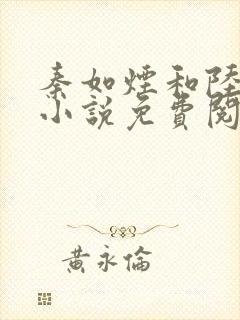 秦如煙和陸
小說免費閱
黃永倫